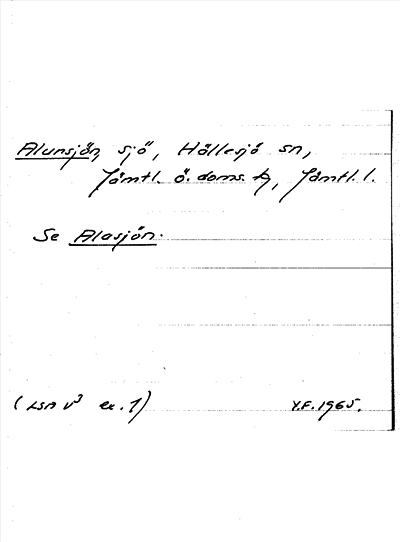 Alunsjön, sjö, Hällesjö sn,
Jämtl. ö. doms. h, Jämtl. l.
Se Alasjön.
(LSA V³ ex. 1) Y.F. 1965.